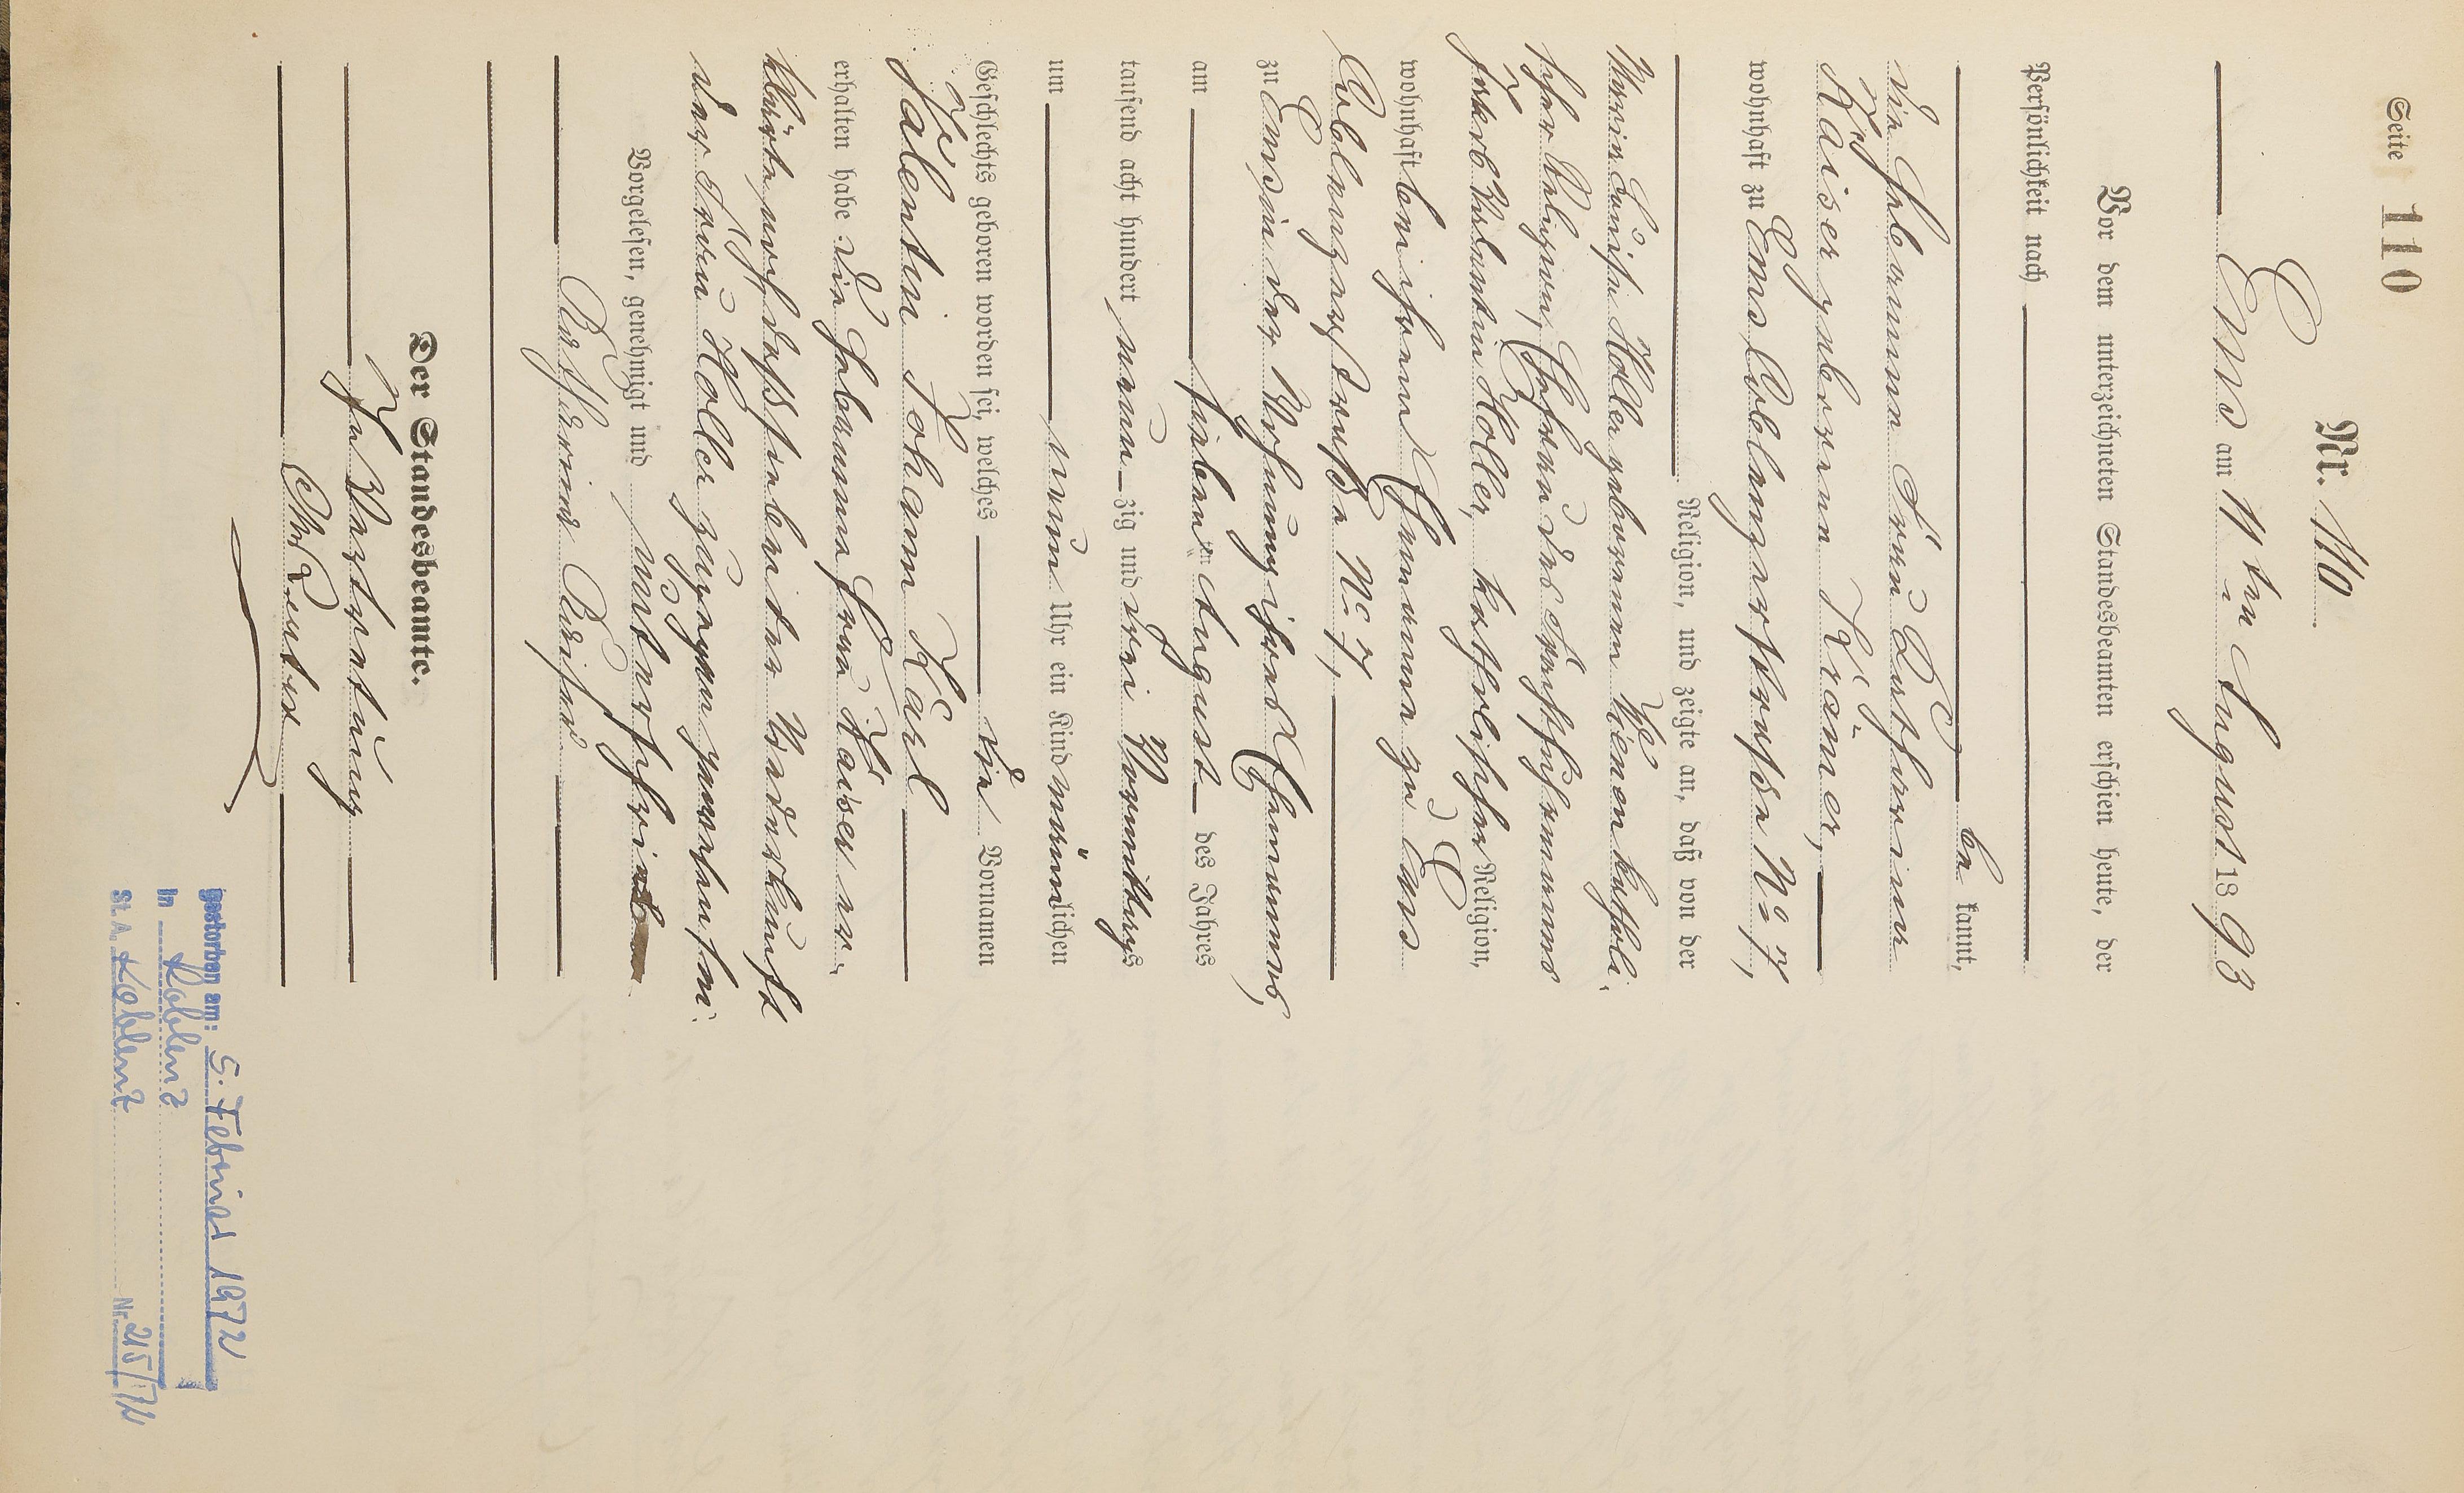 Seite 110
Nr. 110
Ems am 11ten August 1893
Vor dem unterzeichneten Standesbeamten erschien heute, der
Persönlichkeit nach
be kannt,
die Hebamme Frau Katharina
Kaiser geborene Krämer,
wohnhaft zu Ems, Coblenzerstraße No 7,
Religion, und zeigte an, daß von der
Maria Louise Holler geborenen Wienen katholi-
scher Religion, Ehefrau des
Jakob Valentin Holler, katholischer Religion,
wohnhaft bei ihrem Ehemanne zu Ems
Coblenzerstraße No 7,
zu Ems in der Wohnung ihres Ehemannes,
am sieben ten August des Jahres
tausend acht hundert neun zig und drei Vormittags
um neun Uhr ein Kind männlichen
Geschlechts geboren worden sei, welches die Vornamen
Valentin Johann Karl
erhalten habe. Die Hebamme Frau Kaiser er-
klärte noch, daß sie bei der Niederkunft
der Frau Holler zugegen gewesen sei.
Vorgelesen, genehmigt und unterschrieben
Katharina Kaiser
Der Standesbeamte.
In Vertretung
gestorben am: 5. Februar 1972
in Koblenz
St. A. Koblenz Nr. 215/72